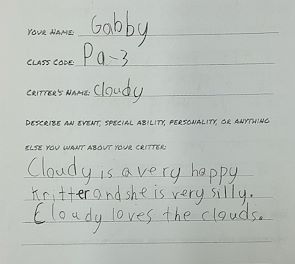 Your Name: Gabby
Class Code: Pa-3
Critter's Name: Cloudy
Describe an event, special ability, personality, or anything
else you want about your critter:
Cloudy is a very happy
Kritter and she is very silly.
Cloudy loves the clouds.